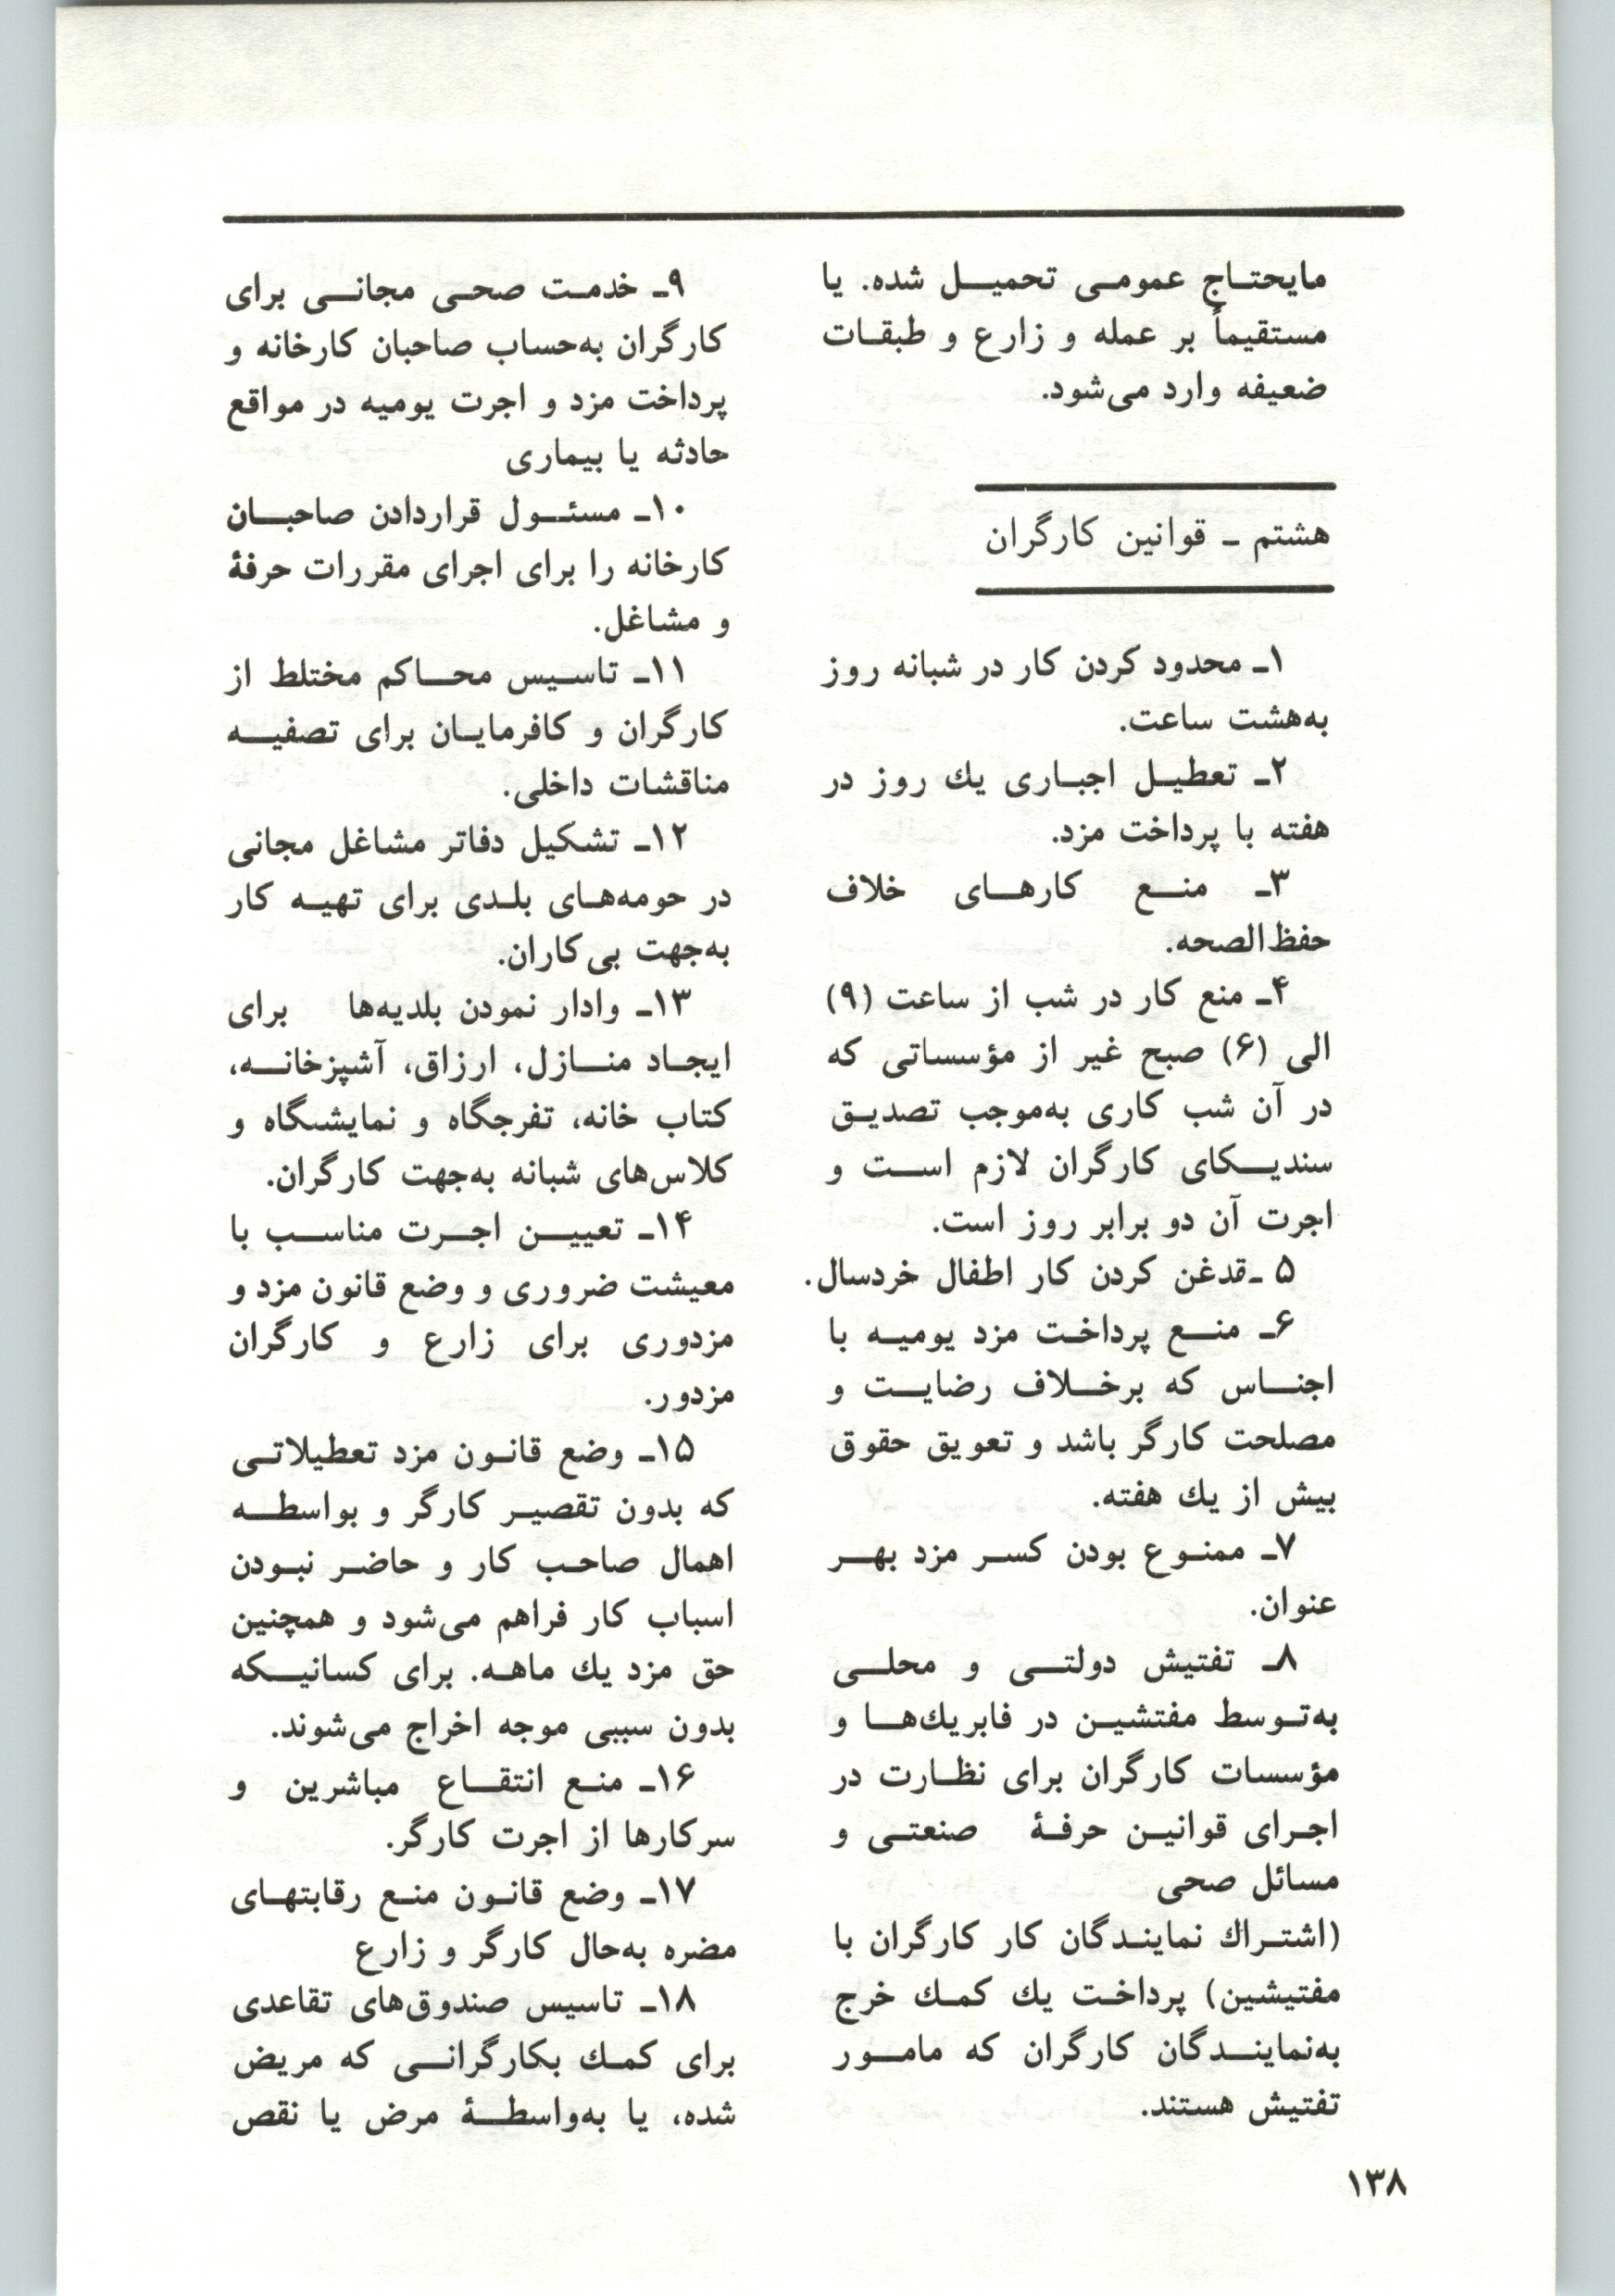 مایحتاج عمومی تحمیل شده. یا
مستقیماً بر عمله و زارع و طبقات
ضعیفه وارد می‌شود.
هشتم ـ قوانین کارگران
۱ـ محدود کردن کار در شبانه روز
به‌هشت ساعت.
۲ـ تعطیل اجباری یك روز در
هفته با پرداخت مزد.
۳ـ منع کارهای خلاف
حفظ‌الصحه.
۴ـ منع کار در شب از ساعت (۹)
الی (۶) صبح غیر از مؤسساتی که
در آن شب کاری به‌موجب تصدیق
سندیکای کارگران لازم است و
اجرت آن دو برابر روز است.
۵ ـ قدغن کردن کار اطفال خردسال.
۶ـ منع پرداخت مزد یومیه با
اجناس که برخلاف رضایت و
مصلحت کارگر باشد و تعویق حقوق
بیش از یك هفته.
۷ـ ممنوع بودن کسر مزد بهر
عنوان.
۸ـ تفتیش دولتی و محلی
به‌توسط مفتشین در فابریك‌ها و
مؤسسات کارگران برای نظارت در
اجرای قوانین حرفهٔ صنعتی و
مسائل صحی
(اشتراك نمایندگان کار کارگران با
مفتیشین) پرداخت یك کمك خرج
به‌نمایندگان کارگران که مامور
تفتیش هستند.
۹ـ خدمت صحی مجانی برای
کارگران به‌حساب صاحبان کارخانه و
پرداخت مزد و اجرت یومیه در مواقع
حادثه یا بیماری
۱۰ـ مسئول قراردادن صاحبان
کارخانه را برای اجرای مقررات حرفهٔ
و مشاغل.
۱۱ـ تاسیس محاکم مختلط از
کارگران و کافرمایان برای تصفیه
مناقشات داخلی.
۱۲ـ تشکیل دفاتر مشاغل مجانی
در حومه‌های بلدی برای تهیه کار
به‌جهت بی‌کاران.
۱۳ـ وادار نمودن بلدیه‌ها برای
ایجاد منازل، ارزاق، آشپزخانه،
کتاب خانه، تفرجگاه و نمایشگاه و
کلاس‌های شبانه به‌جهت کارگران.
۱۴ـ تعیین اجرت مناسب با
معیشت ضروری و وضع قانون مزد و
مزدوری برای زارع و کارگران
مزدور.
۱۵ـ وضع قانون مزد تعطیلاتی
که بدون تقصیر کارگر و بواسطه
اهمال صاحب کار و حاضر نبودن
اسباب کار فراهم می‌شود و همچنین
حق مزد یك ماهه. برای کسانیکه
بدون سببی موجه اخراج می‌شوند.
۱۶ـ منع انتقاع مباشرین و
سرکارها از اجرت کارگر.
۱۷ـ وضع قانون منع رقابتهای
مضره به‌حال کارگر و زارع
۱۸ـ تاسیس صندوق‌های تقاعدی
برای کمك بکارگرانی که مریض
شده، یا به‌واسطهٔ مرض یا نقص
۱۳۸